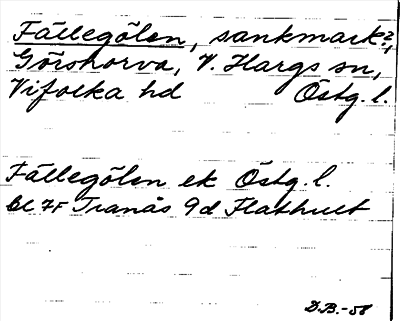 Fällegölen, sankmark?,
Görshorva, V. Hargs sn,
Vifolka hd Östg. l.
Fällegölen ek Östg. l.
bl 7F Tranås 9d Flathult
D.B.-58